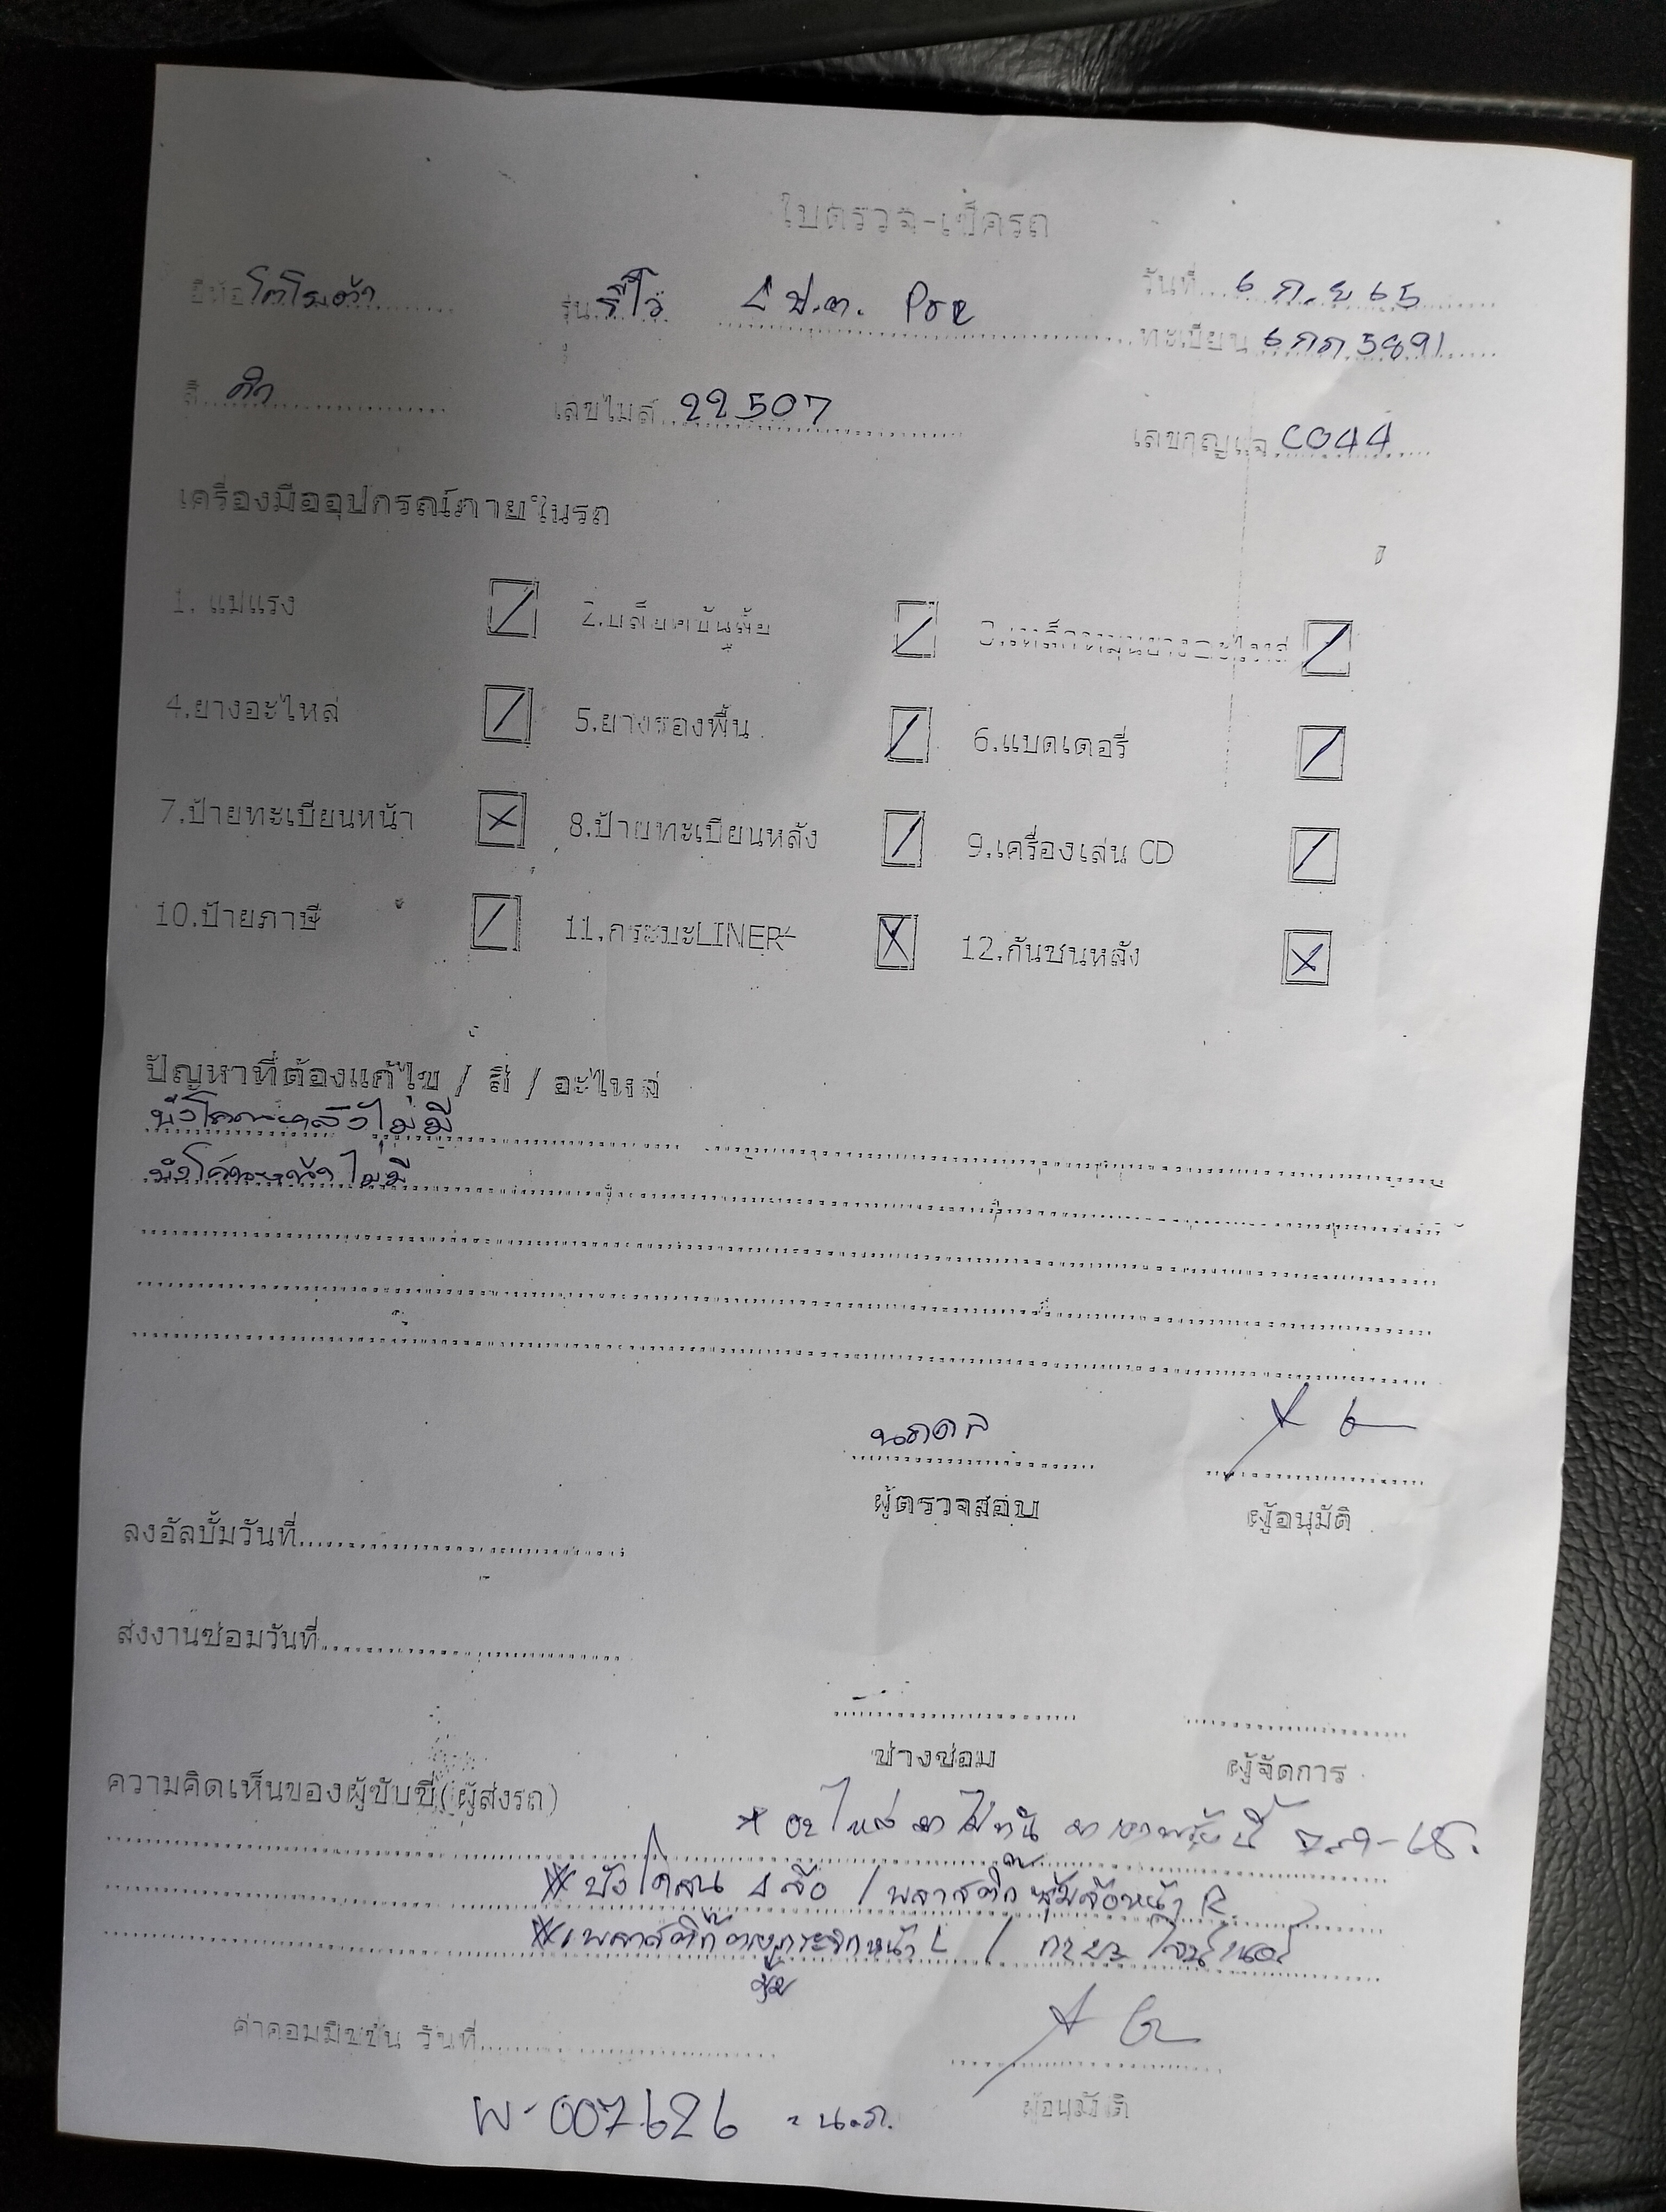 ใบตรวจ-เช็ครถ
ยี่ห้อ โตโยต้า รุ่น รีโว่ 4 ป.ต. Pre วันที่ 6 ก.ย 65
ทะเบียน 6กก 5891
สี ดำ เลขไมล์ 22507 เลขกุญแจ C044
เครื่องมืออุปกรณ์ภายในรถ
1. แม่แรง 2.บล็อคขันล้อ 3.เหล็กหมุนยางอะไหล่
4.ยางอะไหล่ 5.ยางรองพื้น 6.แบตเตอรี่
7.ป้ายทะเบียนหน้า 8.ป้ายทะเบียนหลัง 9.เครื่องเล่น CD
10.ป้ายภาษี 11.กระบะLINER 12.กันชนหลัง
ปัญหาที่ต้องแก้ไข / สี / อะไหล่
บังโคลนหลังไม่มี
บังโคลนหน้าไม่มี
ผู้ตรวจสอบ ผู้อนุมัติ
ลงอัลบั้มวันที่
ส่งงานซ่อมวันที่
ช่างซ่อม ผู้จัดการ
ความคิดเห็นของผู้ขับขี่(ผู้ส่งรถ)
* อะไหล่มาไม่ทัน มาเอาพรุ่งนี้
* บังโคลน 4 ล้อ / พลาสติกซุ้มล้อหน้า R
* พลาสติก หูกระจกหน้า L / กระบะ ไลน์เนอร์
ค่าคอมมิชชั่น วันที่
ผู้อนุมัติ
W-007626 = น.ภ.